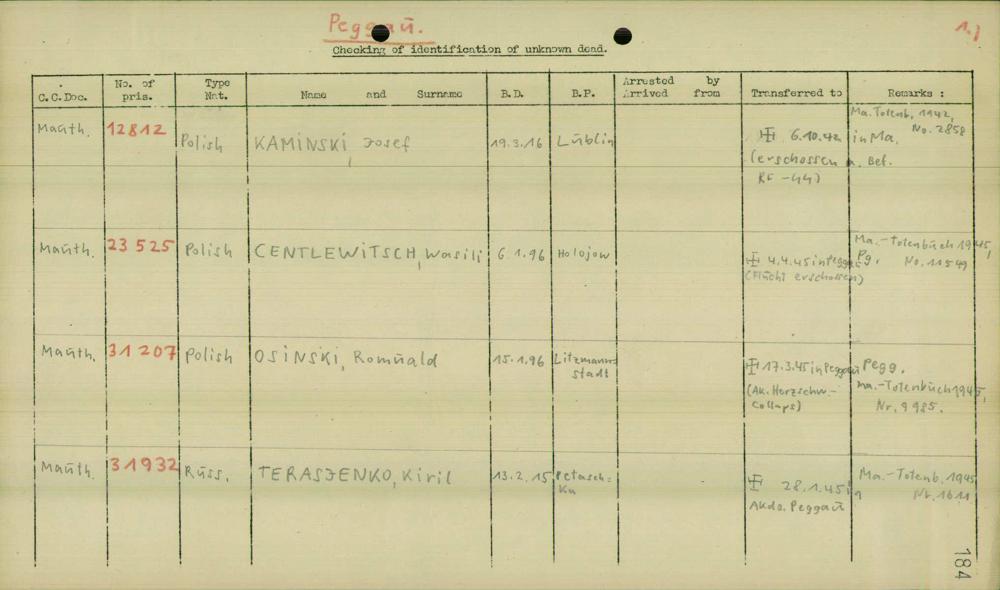 Peggaū. 1.)
Checking of identification of unknown dead.
C.C.Doc. No. of pris. Type Nat. Name and Surname B.D. B.P. Arrested by Arrived from Transferred to Remarks :
Maūth. 12812 Polish KAMINSKI, Josef 19.3.16 Lūblin
6.10.42 in Ma.
(erschossen a. Bef.
RF-44)
Ma. Totenb. 1942,
No. 2858
Maūth. 23 525 Polish CENTLEWITSCH, Wasili 6.1.96 Holojow
4.4.45 in Peggaū
(Flūcht erschossen)
Ma.-Totenbūch 1945,
Pg. No. 11549
Maūth. 31 207 Polish OSINSKI, Romūald 15.1.96 Litzmann-
stadt
17.3.45 in Peggaū
(Ak. Herzschw.-
Collaps)
Pegg.
Ma.-Totenbūch 1945,
Nr. 9985.
Maūth. 31932 Rūss. TERASJENKO, Kiril 13.2.15 Petasch=
Ka
28.1.45 in
Akdo. Peggaū
Ma.-Totenb. 1945
Nr. 1611
184